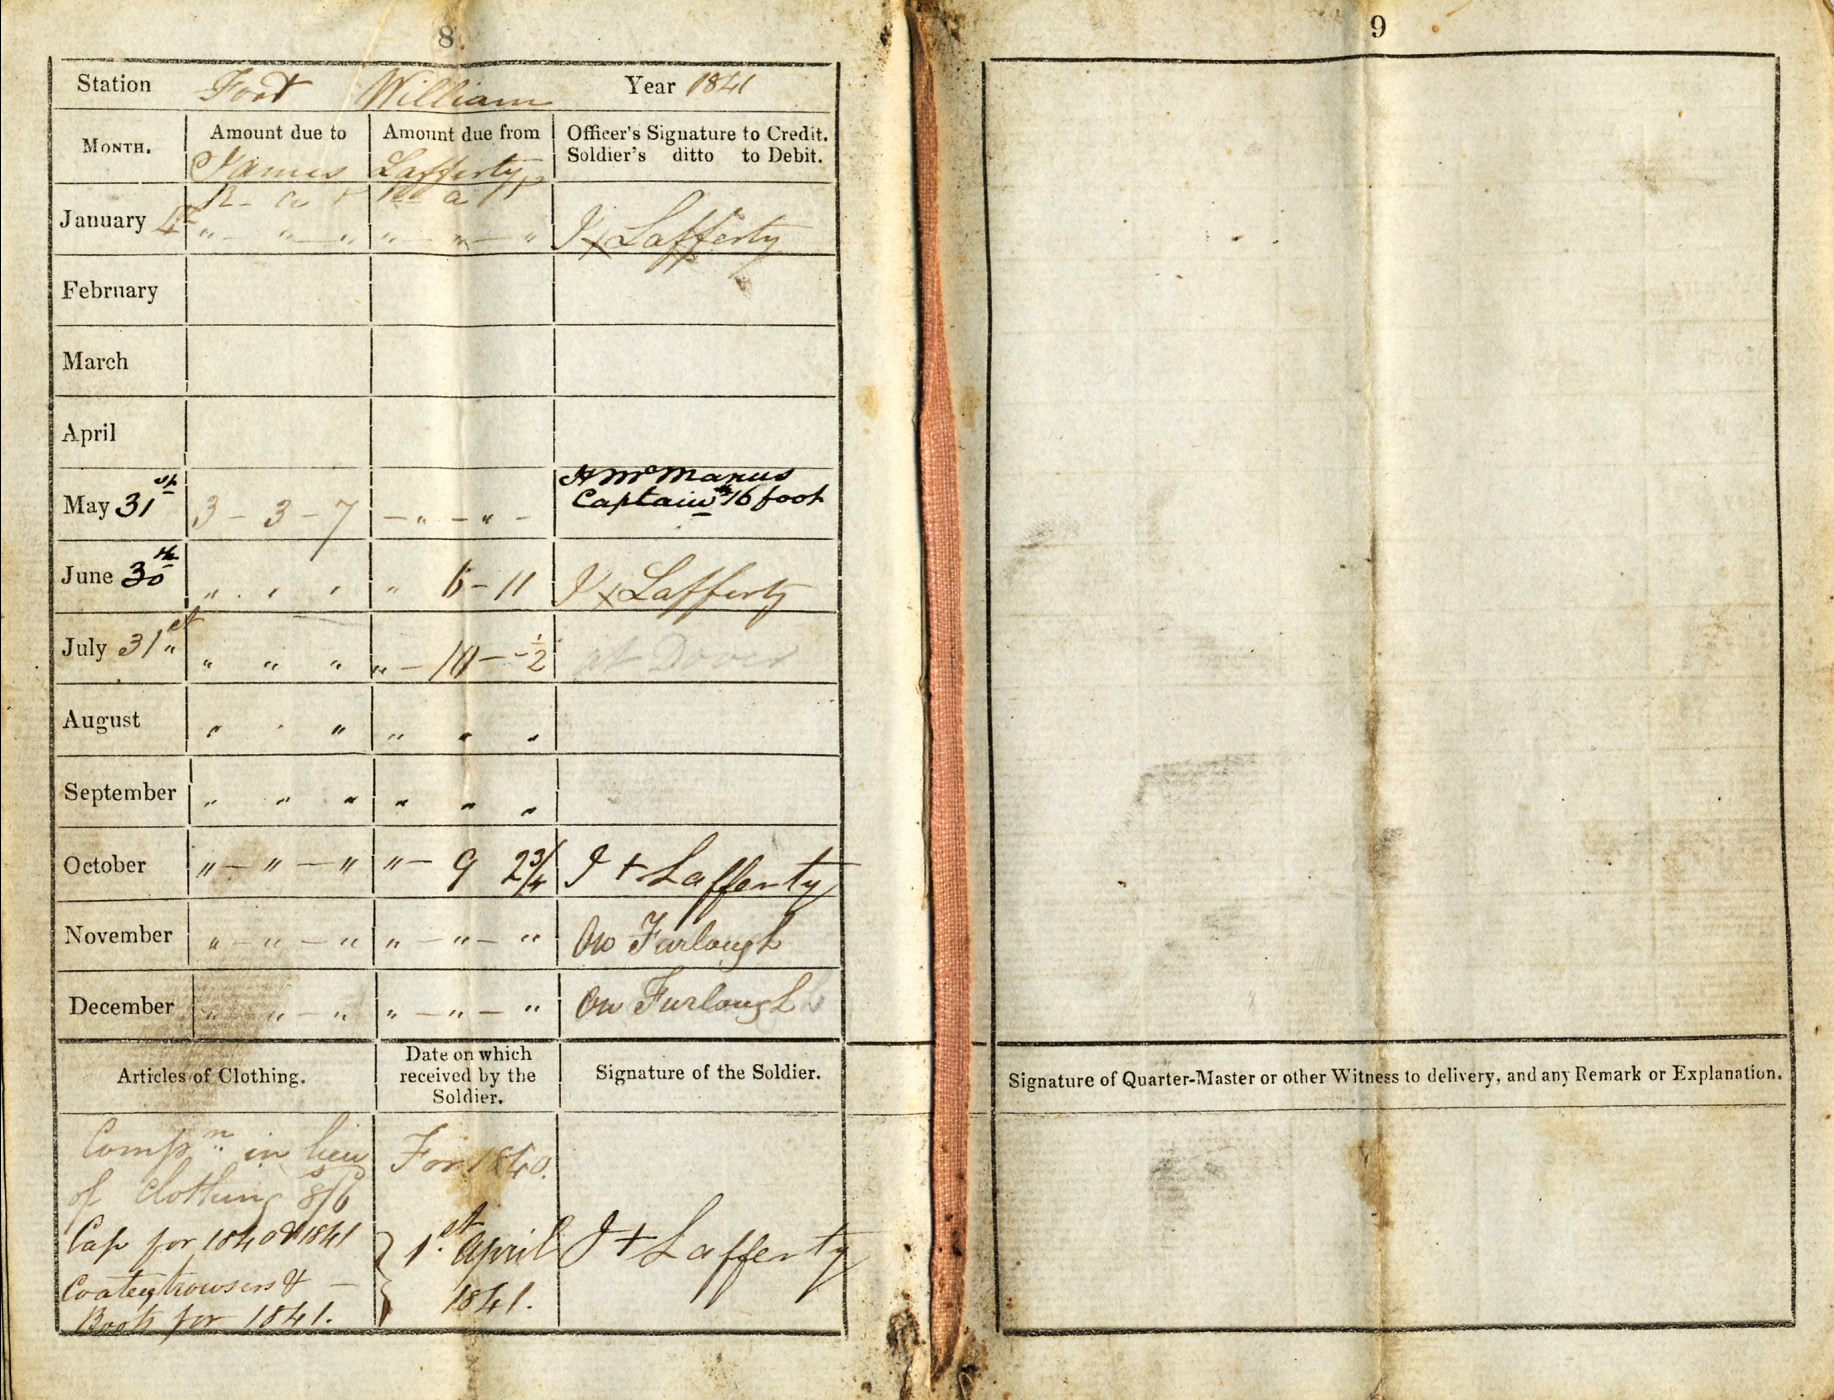 8
Station Fort William Year 1841
MONTH. Amount due to Amount due from Officer's Signature to Credit.
Soldier's ditto to Debit.
James Lafferty
R a P Rs a P
January 4th " — " — " " — " — " J x Lafferty
February
March
April
May 31st 3 — 3 — 7 — " — " — H McManus
Captain 16th foot
June 30th " " " " 6 — 11 J x Lafferty
July 31st " " " " — 10 — — 1/2 at Dover
August " " " " " "
September " " " " " "
October " — " — " " — 9 2 3/4 J + Lafferty
November " — " — " " — " — " On Furlough
December " — " — " " — " — " On Furlough
Articles of Clothing. Date on which
received by the
Soldier. Signature of the Soldier.
Compn in lieu
of Clothing 8s/6d For 1840.
Cap for 1840 & 1841
Coatey trowsers & —
Boots for 1841. 1st April
1841. J + Lafferty
9
Signature of Quarter-Master or other Witness to delivery, and any Remark or Explanation.